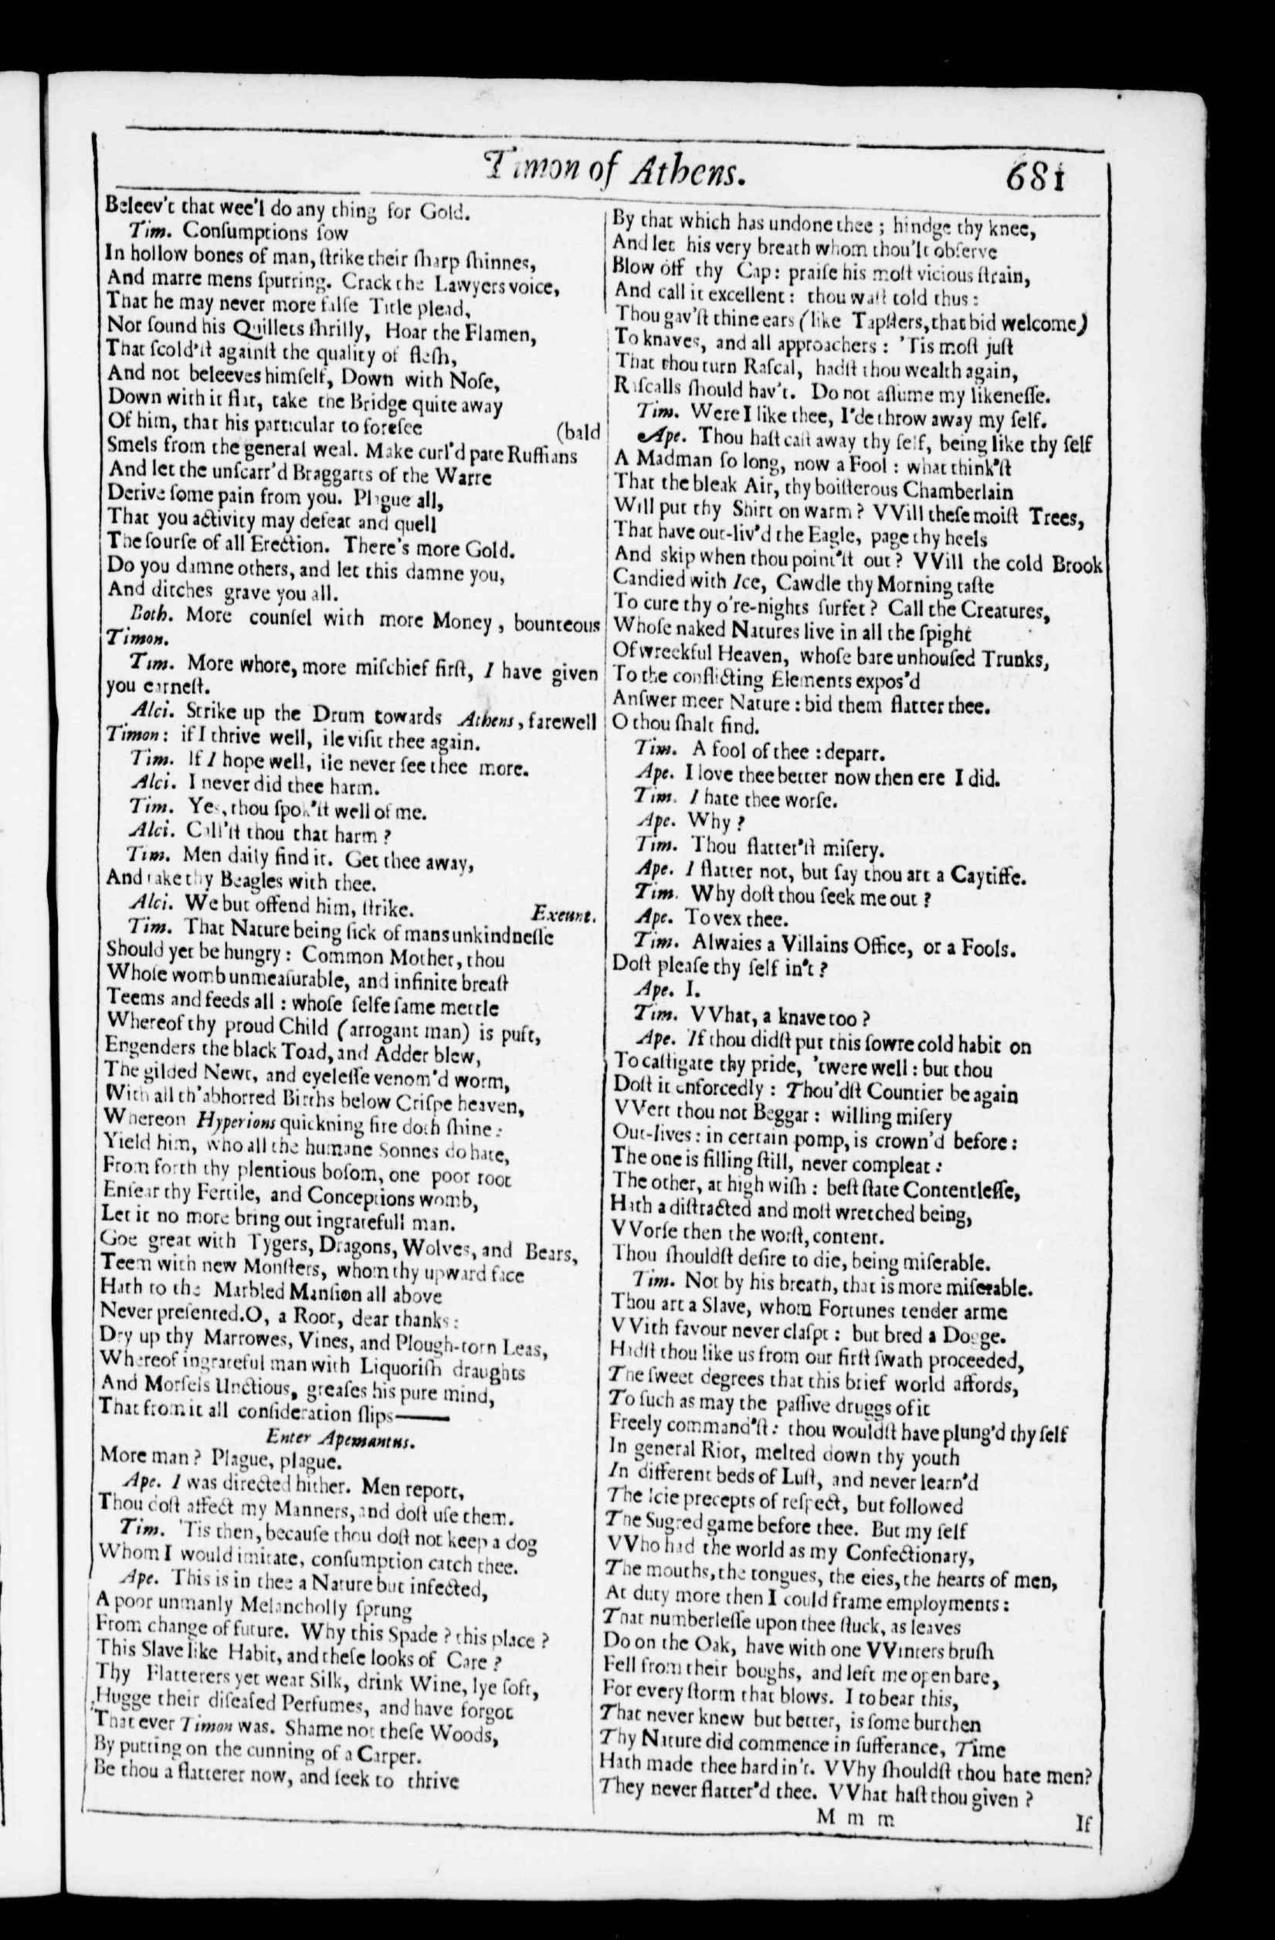 Timon of Athens. 681
Beleev't that wee'l do any thing for Gold.
Tim. Conſumptions ſow
In hollow bones of man, ſtrike their ſharp ſhinnes,
And marre mens ſpurring. Crack the Lawyers voice,
That he may never more falſe Title plead,
Nor ſound his Quillets ſhrilly, Hoar the Flamen,
That ſcold'ſt againſt the quality of fleſh,
And not beleeves himſelf, Down with Noſe,
Down with it flat, take the Bridge quite away
Of him, that his particular to foreſee (bald
Smels from the general weal. Make curl'd pate Ruffians
And let the unſcarr'd Braggarts of the Warre
Derive ſome pain from you. Plague all,
That you activity may defeat and quell
The ſourſe of all Erection. There's more Gold.
Do you damne others, and let this damne you,
And ditches grave you all.
Both. More counſel with more Money, bounteous
Timon.
Tim. More whore, more miſchief firſt, I have given
you earneſt.
Alci. Strike up the Drum towards Athens, farewell
Timon: if I thrive well, ile viſit thee again.
Tim. If I hope well, ile never ſee thee more.
Alci. I never did thee harm.
Tim. Yes, thou ſpok'ſt well of me.
Alci. Call'ſt thou that harm?
Tim. Men daily find it. Get thee away,
And take thy Beagles with thee.
Alci. We but offend him, ſtrike. Exeunt.
Tim. That Nature being ſick of mans unkindneſſe
Should yet be hungry: Common Mother, thou
Whoſe womb unmeaſurable, and infinite breaſt
Teems and feeds all: whoſe ſelfe ſame mettle
Whereof thy proud Child (arrogant man) is puft,
Engenders the black Toad, and Adder blew,
The gilded Newt, and eyeleſſe venom'd worm,
With all th'abhorred Births below Criſpe heaven,
Whereon Hyperions quickning fire doth ſhine:
Yield him, who all the humane Sonnes do hate,
From forth thy plentious boſom, one poor root
Enſear thy Fertile, and Conceptions womb,
Let it no more bring out ingratefull man.
Goe great with Tygers, Dragons, Wolves, and Bears,
Teem with new Monſters, whom thy upward face
Hath to the Marbled Manſion all above
Never preſented. O, a Root, dear thanks:
Dry up thy Marrowes, Vines, and Plough-torn Leas,
Whereof ingrateful man with Liquoriſh draughts
And Morſels Unctious, greaſes his pure mind,
That from it all conſideration ſlips——
Enter Apemantus.
More man? Plague, plague.
Ape. I was directed hither. Men report,
Thou doſt affect my Manners, and doſt uſe them.
Tim. 'Tis then, becauſe thou doſt not keep a dog
Whom I would imitate, conſumption catch thee.
Ape. This is in thee a Nature but infected,
A poor unmanly Melancholly ſprung
From change of future. Why this Spade? this place?
This Slave like Habit, and theſe looks of Care?
Thy Flatterers yet wear Silk, drink Wine, lye ſoft,
Hugge their diſeaſed Perfumes, and have forgot
That ever Timon was. Shame not theſe Woods,
By putting on the cunning of a Carper.
Be thou a flatterer now, and ſeek to thrive
By that which has undone thee; hindge thy knee,
And let his very breath whom thou'lt obſerve
Blow off thy Cap: praiſe his moſt vicious ſtrain,
And call it excellent: thou waſt told thus:
Thou gav'ſt thine ears (like Tapſters, that bid welcome)
To knaves, and all approachers: 'Tis moſt juſt
That thou turn Raſcal, hadſt thou wealth again,
Raſcalls ſhould hav't. Do not aſſume my likeneſſe.
Tim. Were I like thee, I'de throw away my ſelf.
Ape. Thou haſt caſt away thy ſelf, being like thy ſelf
A Madman ſo long, now a Fool: what think'ſt
That the bleak Air, thy boiſterous Chamberlain
Will put thy Shirt on warm? VVill theſe moiſt Trees,
That have out-liv'd the Eagle, page thy heels
And skip when thou point'ſt out? VVill the cold Brook
Candied with Ice, Cawdle thy Morning taſte
To cure thy o're-nights ſurfet? Call the Creatures,
Whoſe naked Natures live in all the ſpight
Of wreekful Heaven, whoſe bare unhouſed Trunks,
To the conflicting Elements expos'd
Anſwer meer Nature: bid them flatter thee.
O thou ſhalt find.
Tim. A fool of thee: depart.
Ape. I love thee better now then ere I did.
Tim. I hate thee worſe.
Ape. Why?
Tim. Thou flatter'ſt miſery.
Ape. I flatter not, but ſay thou art a Caytiffe.
Tim. Why doſt thou ſeek me out?
Ape. To vex thee.
Tim. Alwaies a Villains Office, or a Fools.
Doſt pleaſe thy ſelf in't?
Ape. I.
Tim. VVhat, a knave too?
Ape. If thou didſt put this ſowre cold habit on
To caſtigate thy pride, 'twere well: but thou
Doſt it enforcedly: Thou'dſt Countier be again
VVert thou not Beggar: willing miſery
Out-lives: in certain pomp, is crown'd before:
The one is filling ſtill, never compleat:
The other, at high wiſh: beſt ſtate Contentleſſe,
Hath a diſtracted and moſt wretched being,
VVorſe then the worſt, content.
Thou ſhouldſt deſire to die, being miſerable.
Tim. Not by his breath, that is more miſerable.
Thou art a Slave, whom Fortunes tender arme
VVith favour never claſpt: but bred a Dogge.
Hadſt thou like us from our firſt ſwath proceeded,
The ſweet degrees that this brief world affords,
To ſuch as may the paſſive druggs of it
Freely command'ſt: thou wouldſt have plung'd thy ſelf
In general Riot, melted down thy youth
In different beds of Luſt, and never learn'd
The Icie precepts of reſpect, but followed
The Sugred game before thee. But my ſelf
VVho had the world as my Confectionary,
The mouths, the tongues, the eies, the hearts of men,
At duty more then I could frame employments:
That numberleſſe upon thee ſtuck, as leaves
Do on the Oak, have with one VVinters bruſh
Fell from their boughs, and left me open bare,
For every ſtorm that blows. I to bear this,
That never knew but better, is ſome burthen
Thy Nature did commence in ſufferance, Time
Hath made thee hard in't. VVhy ſhouldſt thou hate men?
They never flatter'd thee. VVhat haſt thou given?
M m m If